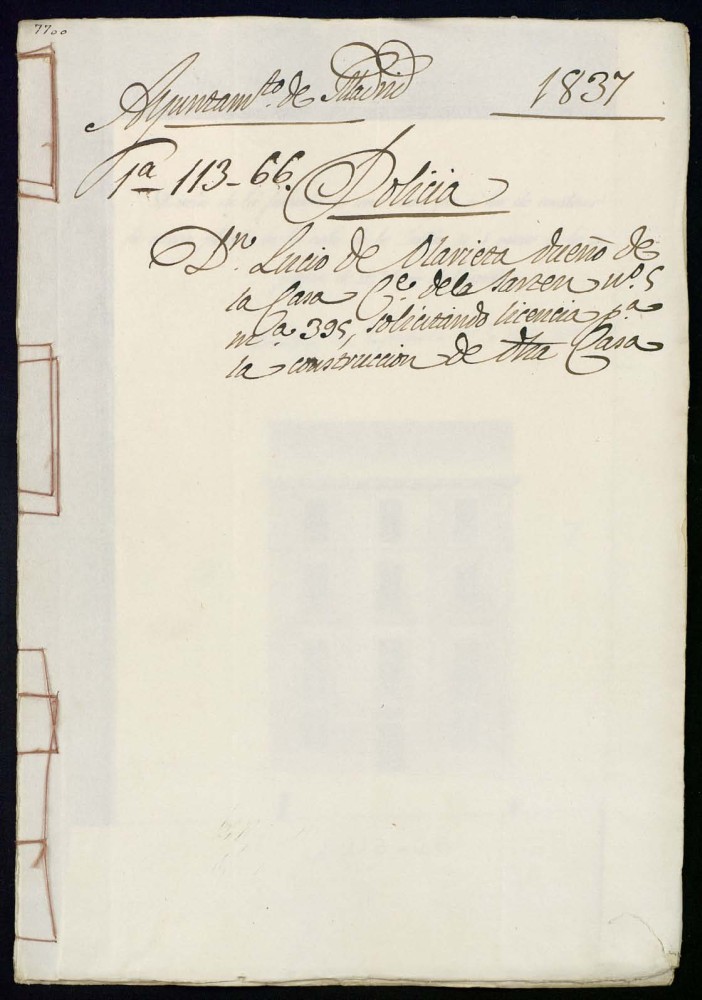 7700
Ayuntamto. de Madrid 1837
1a 113-66. Policia
Dn. Lucio de Olarieta dueño de
la Casa Ce. dela Sarten nº. 5
mª 395, solicitando licencia pª
la construccion de dha Casa